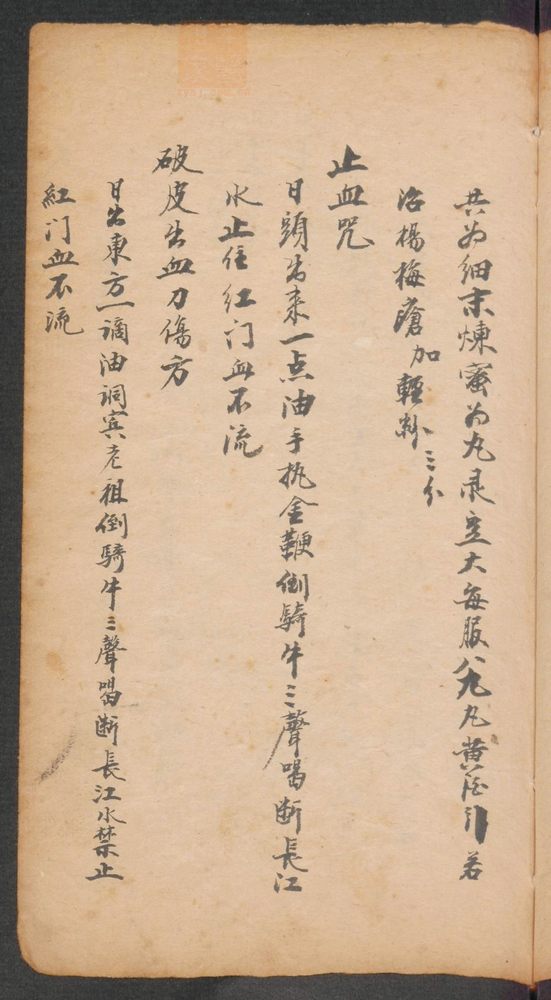 共为细末煉蜜为丸录豆大每服八九丸黄酒引若
治楊梅瘡加輕粉三分
止血咒
日頭出来一点油手执金鞭倒騎牛三聲喝断長江
水止住紅门血不流
破皮出血刀傷方
日出東方一滴油洞宾老祖倒騎牛三聲喝断長江水禁止
紅门血不流